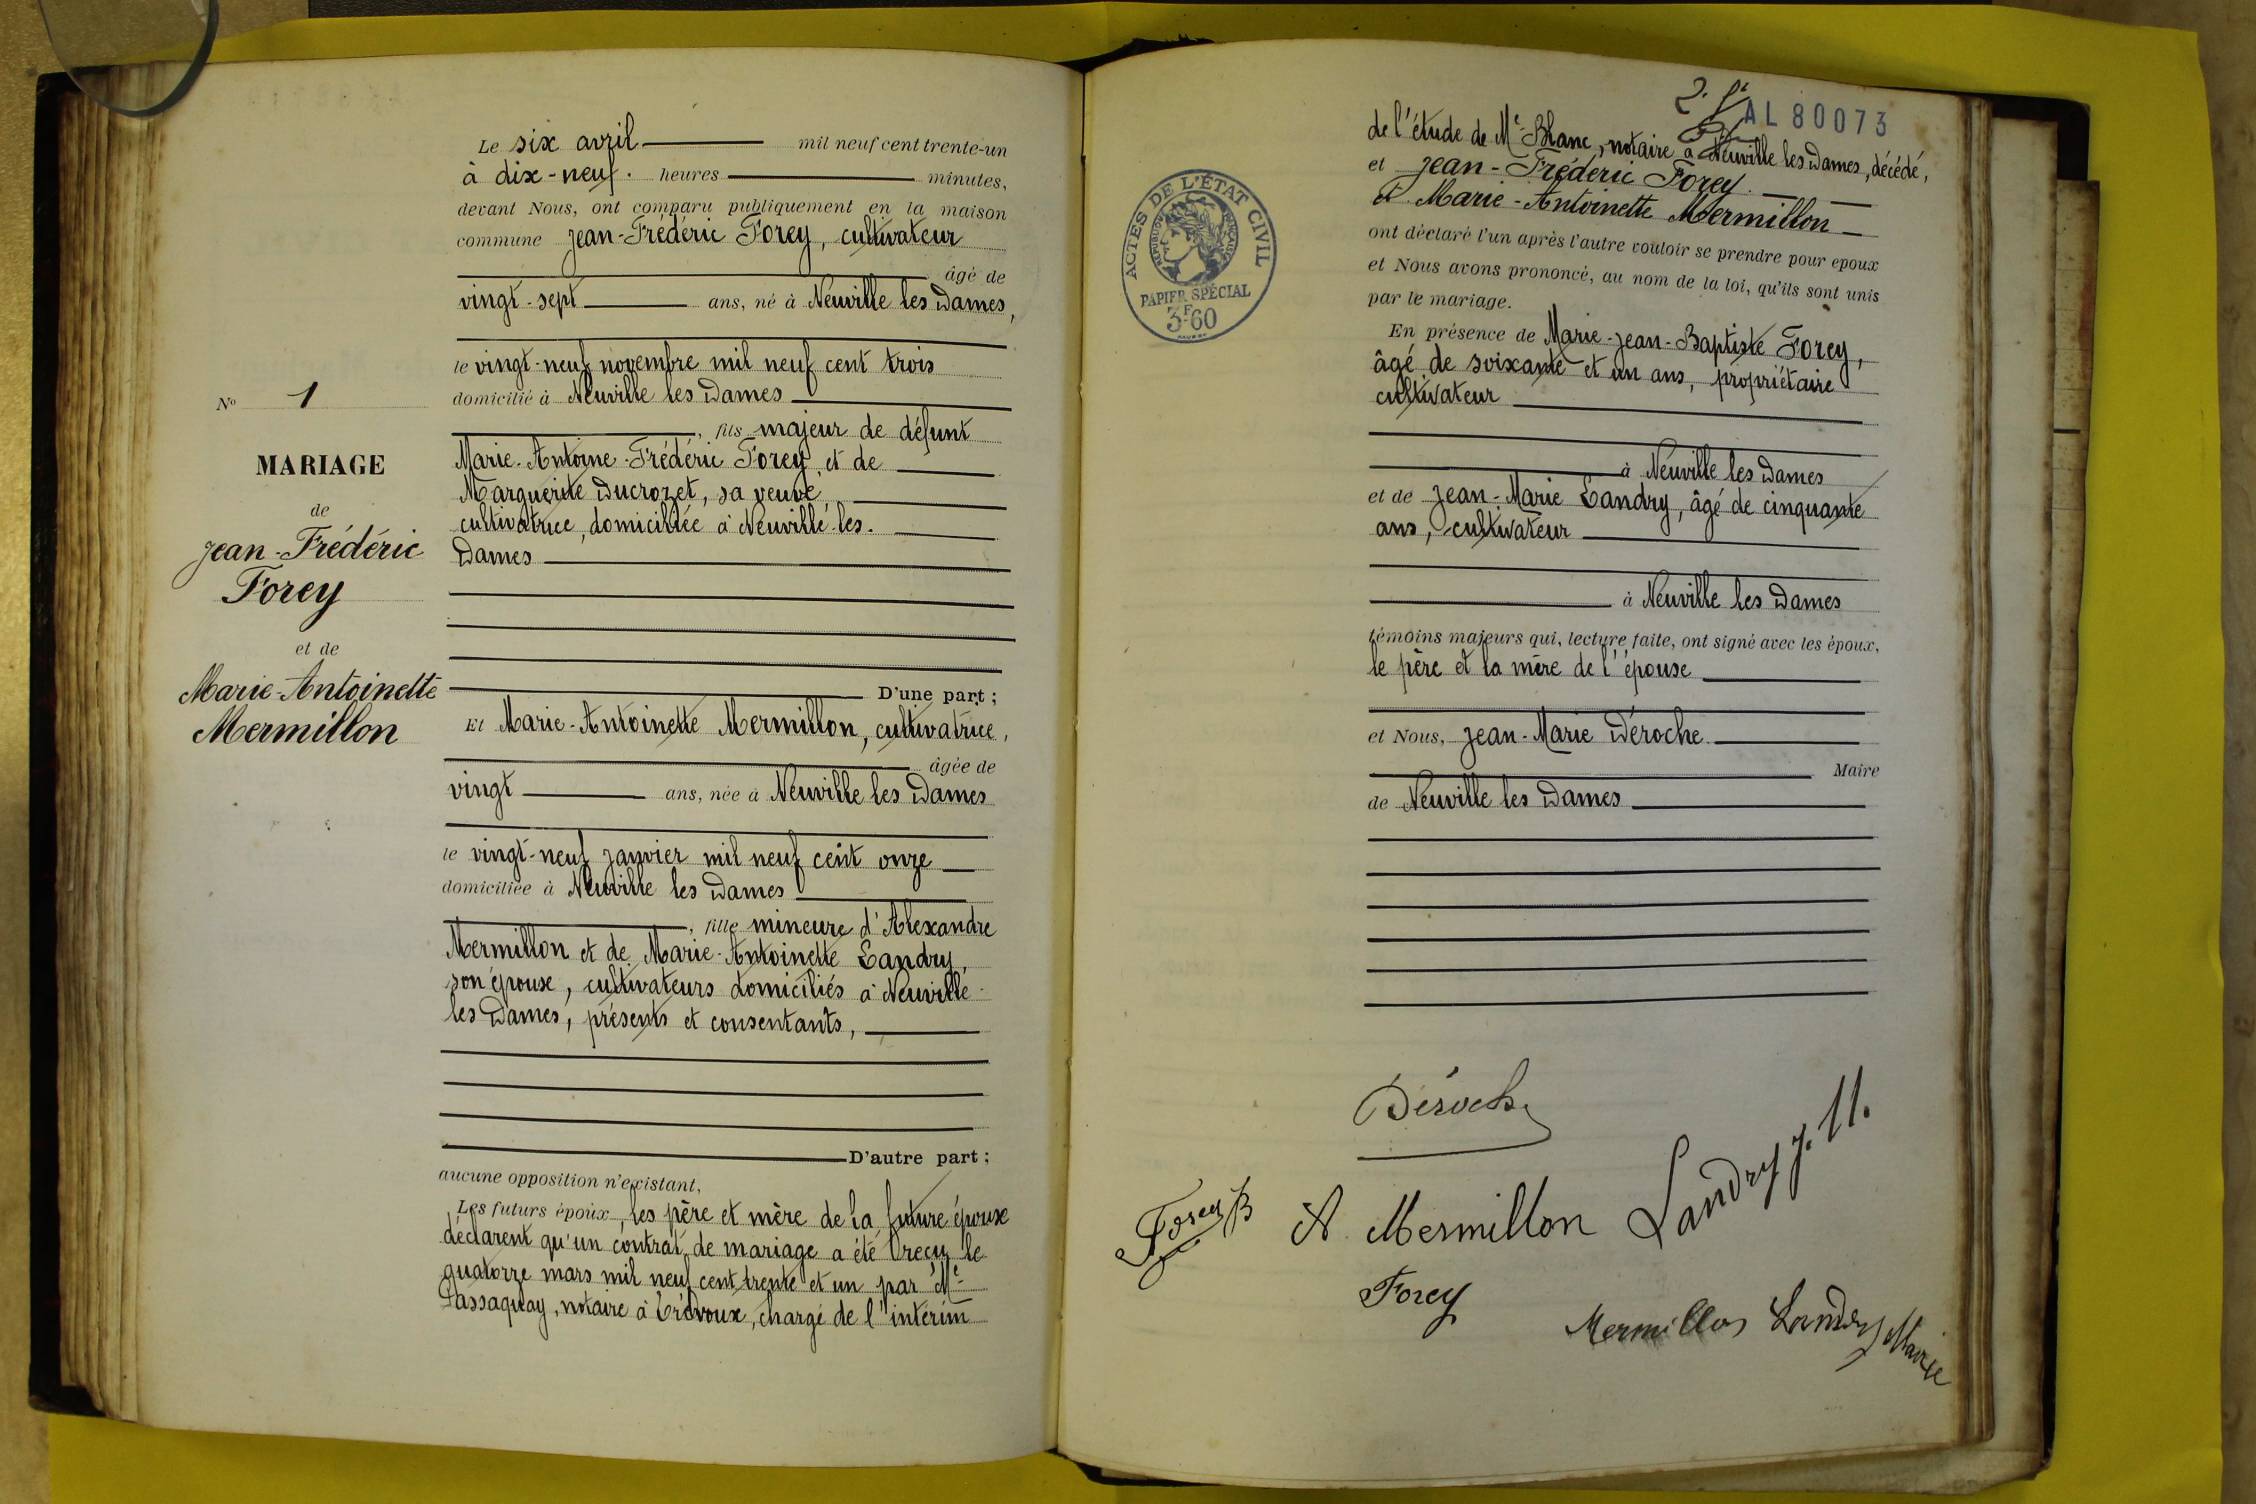 Le six avril mil neuf cent trente-un
à dix-neuf. heures minutes,
devant Nous, ont comparu publiquement en la maison
commune Jean-Frédéric Forey, cultivateur
âgé de
vingt-sept ans, né à Neuville les Dames,
le vingt-neuf novembre mil neuf cent trois
domicilié à Neuville les Dames
, fils majeur de défunt
Marie-Antoine-Frédéric Forey et de
Marguerite Ducrozet, sa veuve
cultivatrice, domiciliée à Neuville-les-
Dames
D'une part;
Et Marie-Antoinette Mermillon, cultivatrice,
âgée de
vingt ans, née à Neuville les Dames
le vingt-neuf janvier mil neuf cent onze
domiciliée à Neuville les Dames
, fille mineure d'Alexandre
Mermillon et de Marie-Antoinette Landry,
son épouse, cultivateurs domiciliés à Neuville-
les Dames, présents et consentants,
D'autre part;
aucune opposition n'existant,
Les futurs époux, les père et mère de la future épouse
déclarent qu'un contrat de mariage a été reçu le
quatorze mars mil neuf cent trente et un par Me
notaire à Trévoux, chargé de l'intérim
No 1
MARIAGE
de
Jean-Frédéric
Forey
et de
Marie-Antoinette
Mermillon
AL 80073
de l'étude de Me Blanc, notaire à Neuville les Dames, décédé,
et Jean-Frédéric Forey.
et Marie-Antoinette Mermillon
ont déclaré l'un après l'autre vouloir se prendre pour epoux
et Nous avons prononcé, au nom de la loi, qu'ils sont unis
par le mariage.
En présence de Marie-Jean-Baptiste Forey,
âgé de soixante et un ans, propriétaire
cultivateur
à Neuville les Dames
et de Jean-Marie Landry, âgé de cinquante
ans, cultivateur
à Neuville les Dames
témoins majeurs qui, lecture faite, ont signé avec les époux,
le père et la mère de l'épouse
et Nous, Jean-Marie Déroche
Maire
de Neuville les Dames
ACTES DE L'ÉTAT CIVIL
RÉPUBLIQUE FRANÇAISE
PAPIER SPÉCIAL
3F60
Déroche
Forey B
A Mermillon
Landry J. M.
Forey
Mermillon
Landry Marie